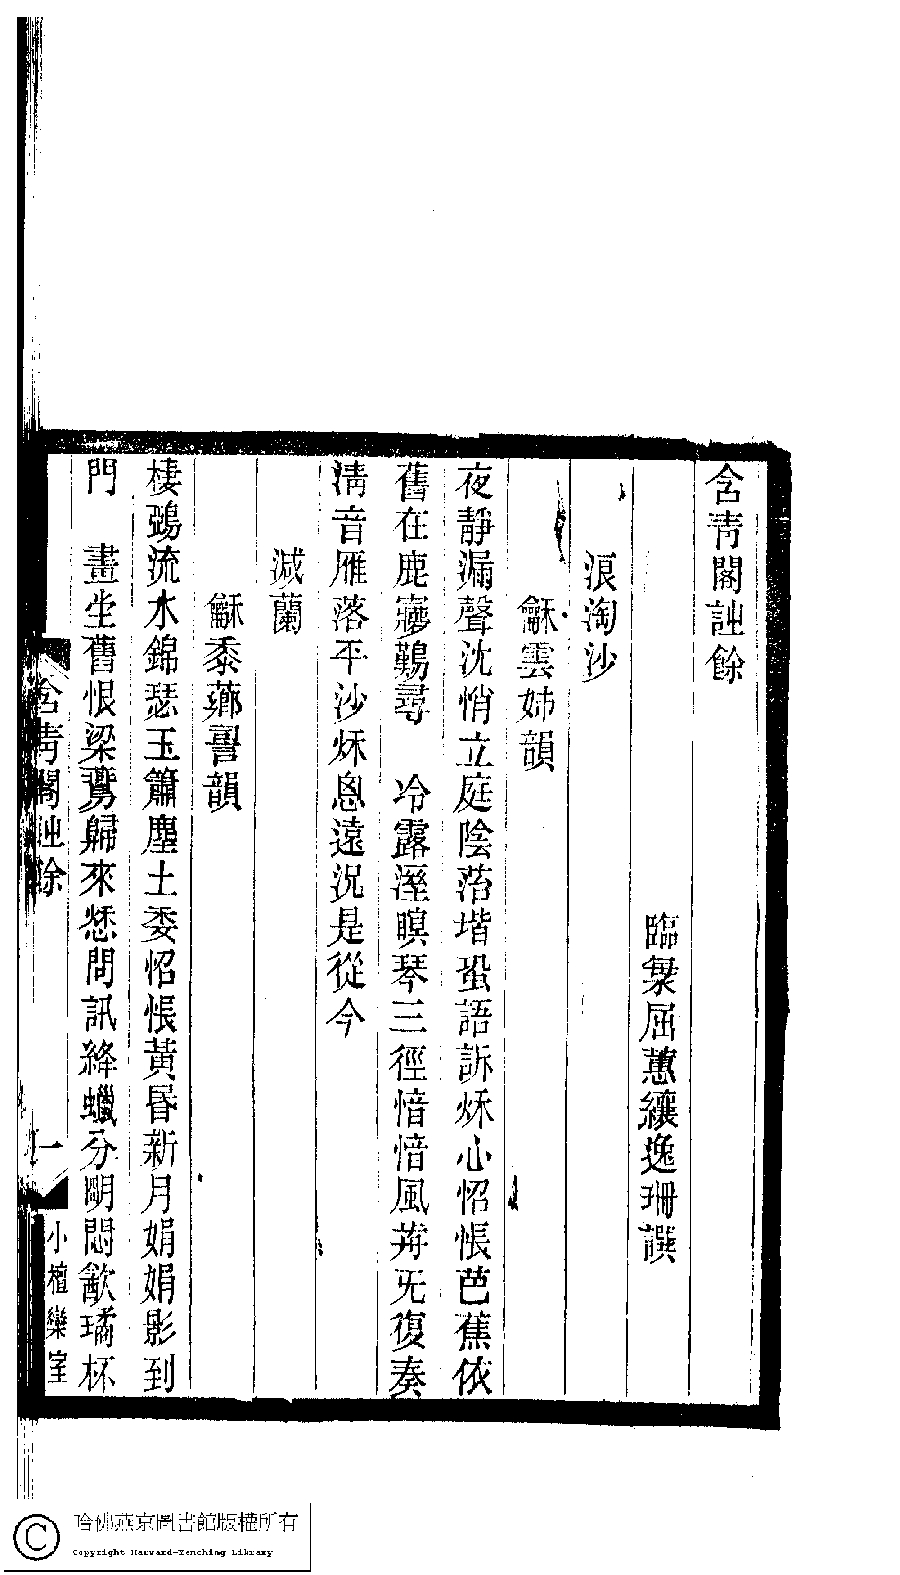 含靑閣詩餘
臨海屈蕙纕逸珊譔
浪淘沙
龢雲姊韻
夜靜漏聲沈悄立庭陰落堦蛩語訴秌心怊悵芭蕉依
舊在鹿夢難尋　冷露溼瞑琴三徑愔愔風荷旡復奏
淸音雁落平沙秌恖遠況是從今
減蘭
龢黍薌韻
棲鵶流水錦瑟玉簫塵土委怊悵黃昏新月娟娟影到
門　畫坣舊恨梁燕歸來愁問訊絳蠟分明悶㱃璚杯
含靑閣詩餘
一
小檀欒室
哈佛燕京圖書館版權所有
Copyright Harvard-Yenching Library